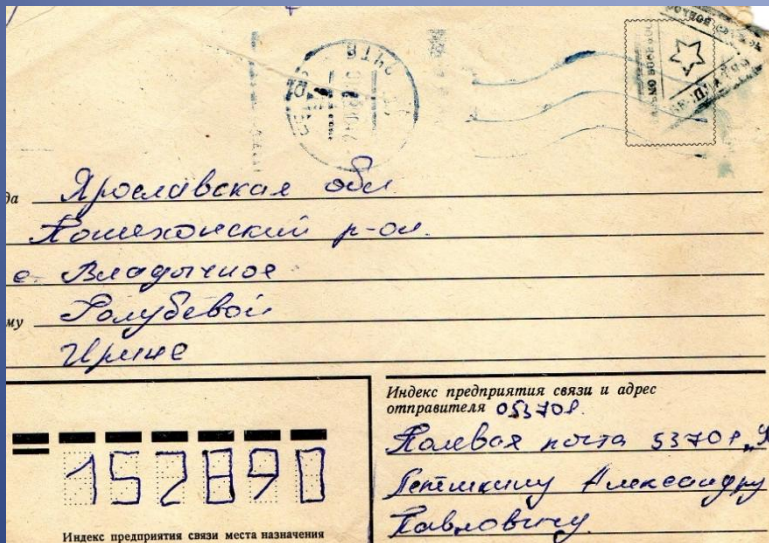 да Ярославская обл.
Пошехонский р-он.
с. Владычное
му Голубевой
Ирине
Индекс предприятия связи и адрес
отправителя 053708.
Полевая почта 53708 „
Александру
Павловичу
152890
Индекс предприятия связи места назначения